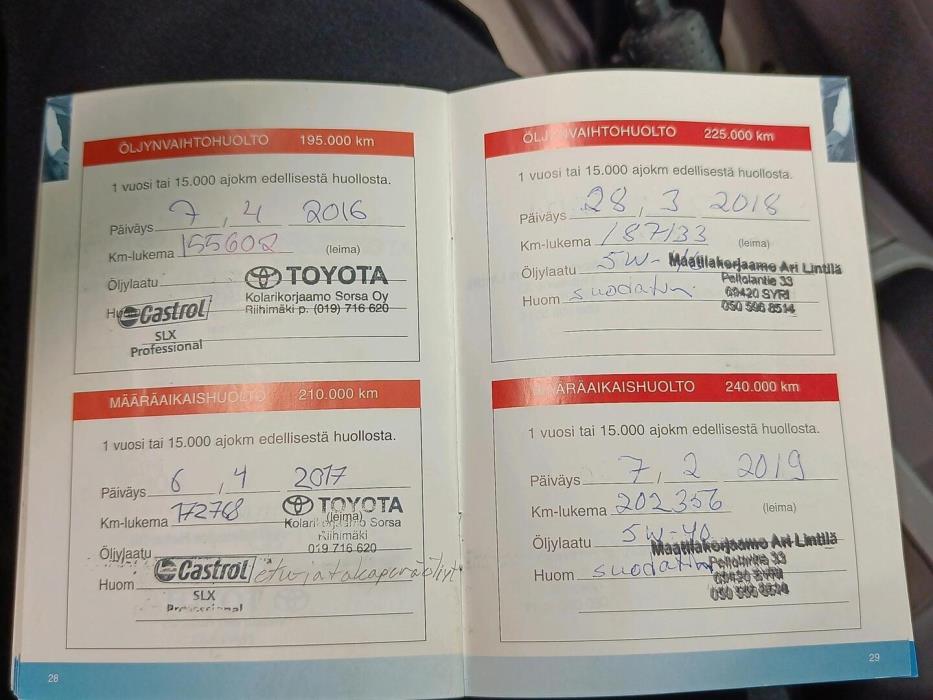 ÖLJYNVAIHTOHUOLTO 195.000 km
1 vuosi tai 15.000 ajokm edellisestä huollosta.
Päiväys 7, 4 2016
Km-lukema 155602 (leima)
Öljylaatu TOYOTA
Kolarikorjaamo Sorsa Oy
Riihimäki p. (019) 716 620
Castrol
SLX
Professional
MÄÄRÄAIKAISHUOLTO 210.000 km
1 vuosi tai 15.000 ajokm edellisestä huollosta.
Päiväys 6, 4 2017
Km-lukema 172768 (leima)
TOYOTA
Kolarikorjaamo Sorsa
Riihimäki
019 716 620
Öljylaatu
Huom Castrol etu ja takaperäöljyt
SLX
Professional
28
ÖLJYNVAIHTOHUOLTO 225.000 km
1 vuosi tai 15.000 ajokm edellisestä huollosta.
Päiväys 28, 3 2018
Km-lukema 187133 (leima)
Öljylaatu 5W-
Maatilakorjaamo Ari Lintilä
Peltolantie 33
69420 SYRI
050 596 8514
Huom suodatin
MÄÄRÄAIKAISHUOLTO 240.000 km
1 vuosi tai 15.000 ajokm edellisestä huollosta.
Päiväys 7, 2 2019
Km-lukema 202356 (leima)
Öljylaatu 5W-40
Maatilakorjaamo Ari Lintilä
Peltolantie 33
69420 SYRI
050 596 8514
Huom suodatin
29